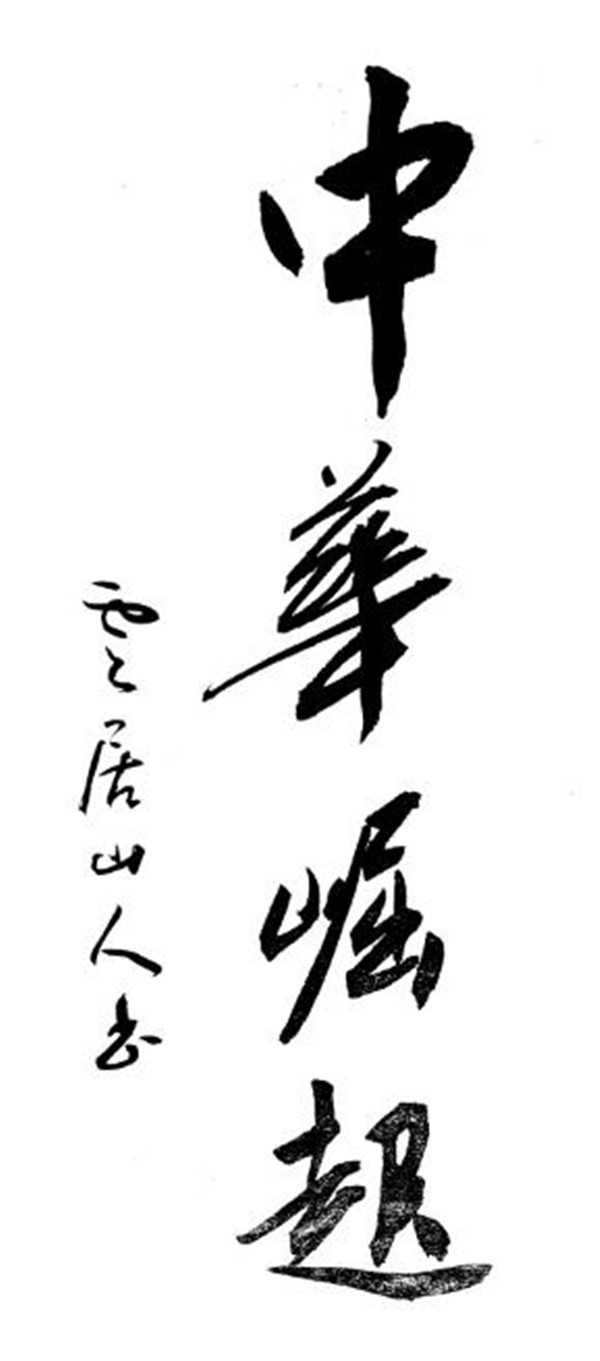 中華崛起
雲居山人书